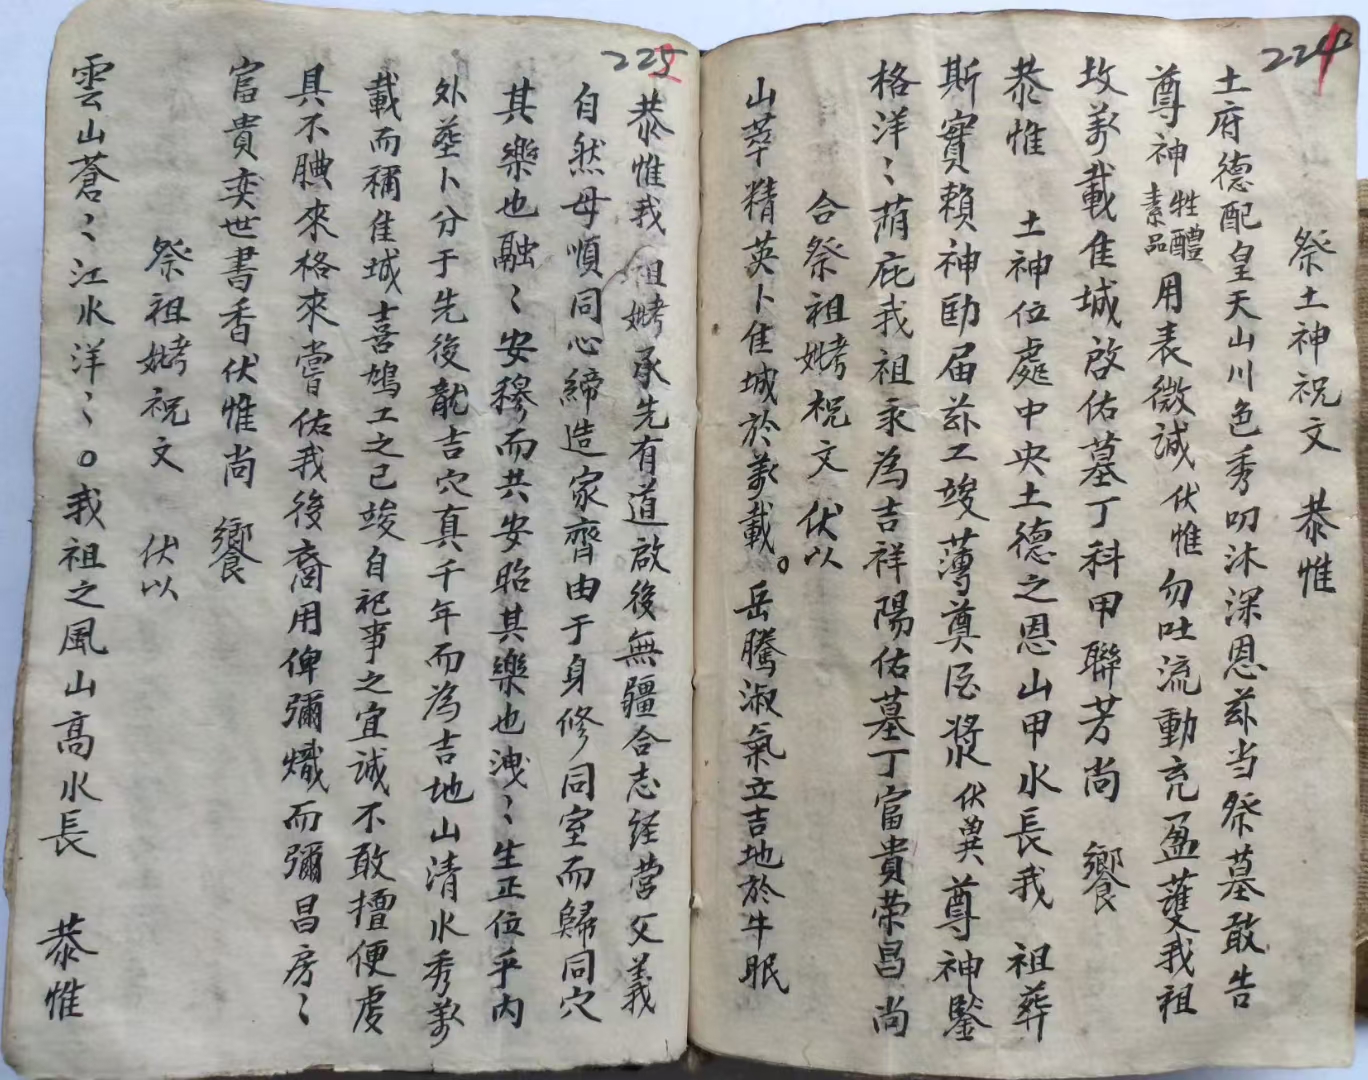 224
祭土神祝文 恭惟
土府德配皇天山川色秀叨沐深恩兹当祭墓敢告
尊神牲醴素品用表微诚伏惟勿吐流動充盈護我祖
坟萬載佳城啓佑墓丁科甲聯芳尚 饗
恭惟 土神位處中央土德之恩山甲水長我 祖葬
斯實賴神助届兹工竣薄奠酒漿伏冀尊神鑒
格洋〻蔭庇我祖永為吉祥陽佑墓丁富貴荣昌尚
合祭祖妣考祝文 伏以
山萃精英卜佳城於萬載。岳騰淑氣立吉地於牛眠
225
恭惟我 祖妣考承先有道啟後無疆合志経营父義
自然母順同心締造家齊由于身修同室而歸同穴
其樂也融〻安穆而共安昭其樂也洩〻生正位乎内
外塟卜分于先後龍吉穴真千年而為吉地山清水秀萬
載而稱佳城喜鳩工之已竣自祀事之宜誠不敢擅便虔
具不腆來格來嘗佑我後裔用俾彌熾而彌昌房〻
富貴奕世書香伏惟尚 饗
祭祖妣考祝文 伏以
雲山蒼〻江水洋〻。我祖之風山高水長 恭惟